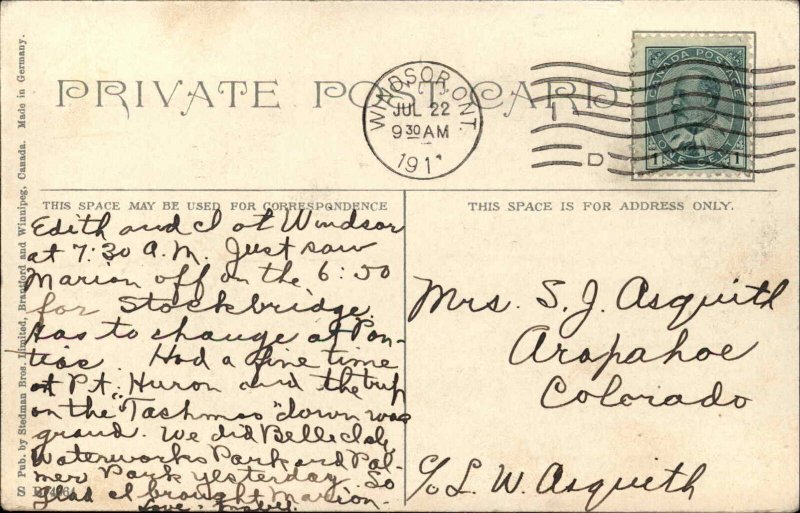 PRIVATE POST CARD
WINDSOR, ONT.
JUL 22
9 30 AM
191
D
CANADA POSTAGE
1 ONE CENT 1
THIS SPACE MAY BE USED FOR CORRESPONDENCE
THIS SPACE IS FOR ADDRESS ONLY.
Edith and I at Windsor
at 7:30 A.M. Just saw
Marion off on the 6:50
for Stockbridge.
Has to change at Pon-
tiac. Had a fine time
at Pt. Huron and the trip
on the "Tashmoo" down was
grand. We did Belle Isle,
Waterworks Park and Pal-
mer Park yesterday. So
glad I brought Marion.
Love. Mabel.
Mrs. S. J. Asquith
Arapahoe
Colorado
c/o L. W. Asquith
Pub. by Stedman Bros. Limited, Brantford and Winnipeg, Canada. Made in Germany.